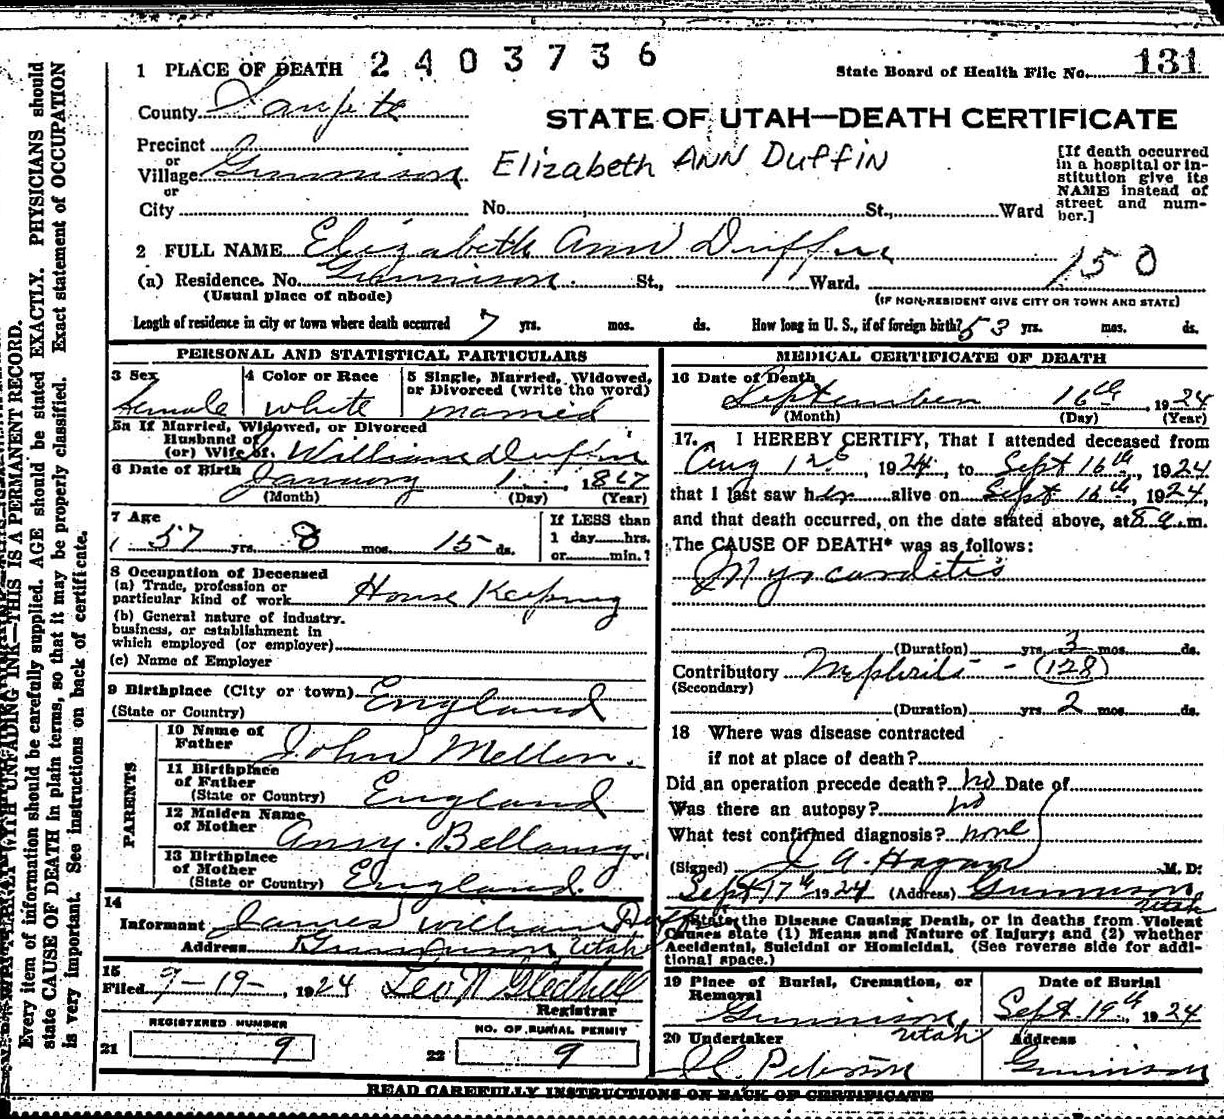 1 PLACE OF DEATH 2403736
State Board of Health File No. 131
County Sanpete
STATE OF UTAH—DEATH CERTIFICATE
Precinct
or
Village Gunnison
or
Elizabeth ANN DuffiN
[If death occurred
in a hospital or in-
stitution give its
NAME instead of
street and num-
ber.]
City No. St., Ward
2 FULL NAME Elizabeth Ann Duffin
150
(a) Residence. No. Gunnison. St., Ward.
(Usual place of abode)
(IF NON-RESIDENT GIVE CITY OR TOWN AND STATE)
Length of residence in city or town where death occurred 7 yrs. mos. ds. How long in U. S., if of foreign birth? 53 yrs. mos. ds.
PERSONAL AND STATISTICAL PARTICULARS
3 Sex
Female
4 Color or Race
white
5 Single, Married, Widowed,
or Divorced (write the word)
married
5a If Married, Widowed, or Divorced
Husband of
(or) Wife of. William Duffin
6 Date of Birth January 1. 1867
(Month) (Day) (Year)
7 Age
57 yrs. 8 mos. 15 ds.
If LESS than
1 day hrs.
or min.?
8 Occupation of Deceased
(a) Trade, profession or
particular kind of work House Keeping
(b) General nature of industry.
business, or establishment in
which employed (or employer)
(c) Name of Employer
9 Birthplace (City or town) England
(State or Country)
PARENTS
10 Name of
Father John Mellen.
11 Birthplace
of Father
(State or Country) England
12 Maiden Name
of Mother Bellamy.
13 Birthplace
of Mother
(State or Country) England.
14
Informant James William Duffin
Address Gunnison Utah
15
Filed 9-19-, 1924 Leo N Gledhill
Registrar
REGISTERED NUMBER
21 9
NO. OF BURIAL PERMIT
22 9
MEDICAL CERTIFICATE OF DEATH
16 Date of Death
September 16th, 1924
(Month) (Day) (Year)
17. I HEREBY CERTIFY, That I attended deceased from
Aug 1924, to Sept 16th, 1924
that I last saw her alive on Sept 16th, 1924,
and that death occurred, on the date stated above, at m.
The CAUSE OF DEATH* was as follows:
Myocarditis
(Duration) yrs. 3 mos. ds.
Contributory Nephritis - (128)
(Secondary)
(Duration) yrs. 2 mos. ds.
18 Where was disease contracted
if not at place of death?
Did an operation precede death? no Date of
Was there an autopsy? no
What test confirmed diagnosis? none
(Signed) J. A. Hagan M. D:
Sept 17th 1924 (Address) Gunnison
Utah
*State the Disease Causing Death, or in deaths from Violent
Causes state (1) Means and Nature of Injury; and (2) whether
Accidental, Suicidal or Homicidal. (See reverse side for addi-
tional space.)
19 Place of Burial, Cremation, or
Removal
Gunnison,
Utah
Date of Burial
Sept. 19th, 1924
20 Undertaker
Address
Gunnison
READ CAREFULLY INSTRUCTIONS ON BACK OF CERTIFICATE
Every item of information should be carefully supplied. AGE should be stated EXACTLY. PHYSICIANS should
state CAUSE OF DEATH in plain terms, so that it may be properly classified. Exact statement of OCCUPATION
is very important. See instructions on back of certificate.
WITH UNFADING INK—THIS IS A PERMANENT RECORD.